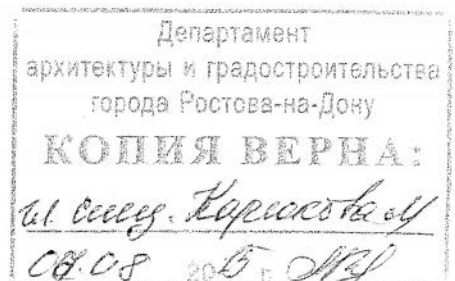 Департамент
архитектуры и градостроительства
города Ростова-на-Дону
КОПИЯ ВЕРНА:
гл. спец.
08 2015 г.